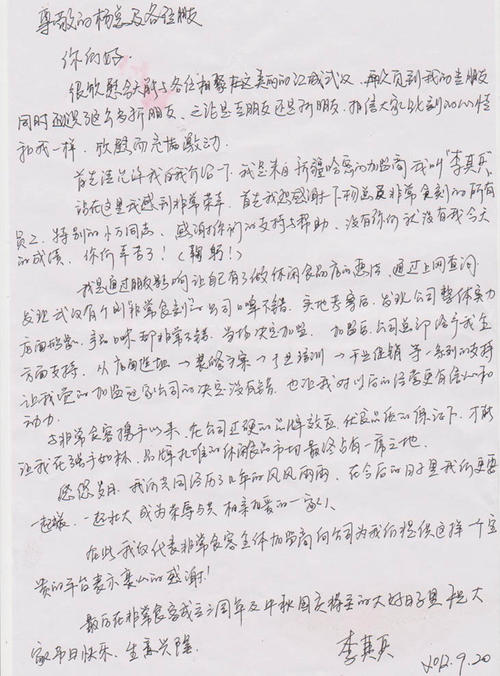 尊敬的杨总及各位朋友
你们好
很欣慰今天能与各位相聚在这美丽的江城武汉，再次见到我的老朋友
同时还认识了这么多新朋友，无论是老朋友还是新朋友，相信大家此刻的心情
和我一样，欣慰而充满激动。
首先请允许我自我介绍一下，我是来自新疆哈密的加盟商我叫"李英兵"
站在这里我感到非常荣幸，首先我想感谢一下杨总及非常食刻的所有
员工，特别的小万同志，感谢你们的支持与帮助，没有你们就没有我今天
的成绩，你们辛苦了！（鞠躬！）
我是通过朋友影响让自己有了做休闲食品店的想法，通过上网查询
发现武汉有个叫非常食刻的公司口碑不错，实地考察后，发现公司整体实力
店面形象，产品口味都非常不错，当场决定加盟。加盟后，公司总部给予我全
方面支持，从店面选址→装修方案→开业培训→开业促销等一系列的支持
让我觉的加盟这家公司的决定没有错，也让我对以后的经营更有信心和
动力。
与非常食客携手以来，在公司过硬的品牌效应，优良品质的保证下，才能
让我在强手如林，品牌扎堆的休闲食品市场最终占有一席之地。
悠悠岁月，我们共同经历了几年的风风雨雨，在今后的日子里我们更要
一起 一起壮大 成为荣辱与共 相亲相爱的一家人
在此我仅代表非常食客全体加盟商向公司为我们提供这样一个宝
贵的平台表示衷心的感谢！
最后在非常食客成立三周年及中秋国庆将至的大好日子里祝大
家节日快乐、生意兴隆。
李英兵 2012.9.20